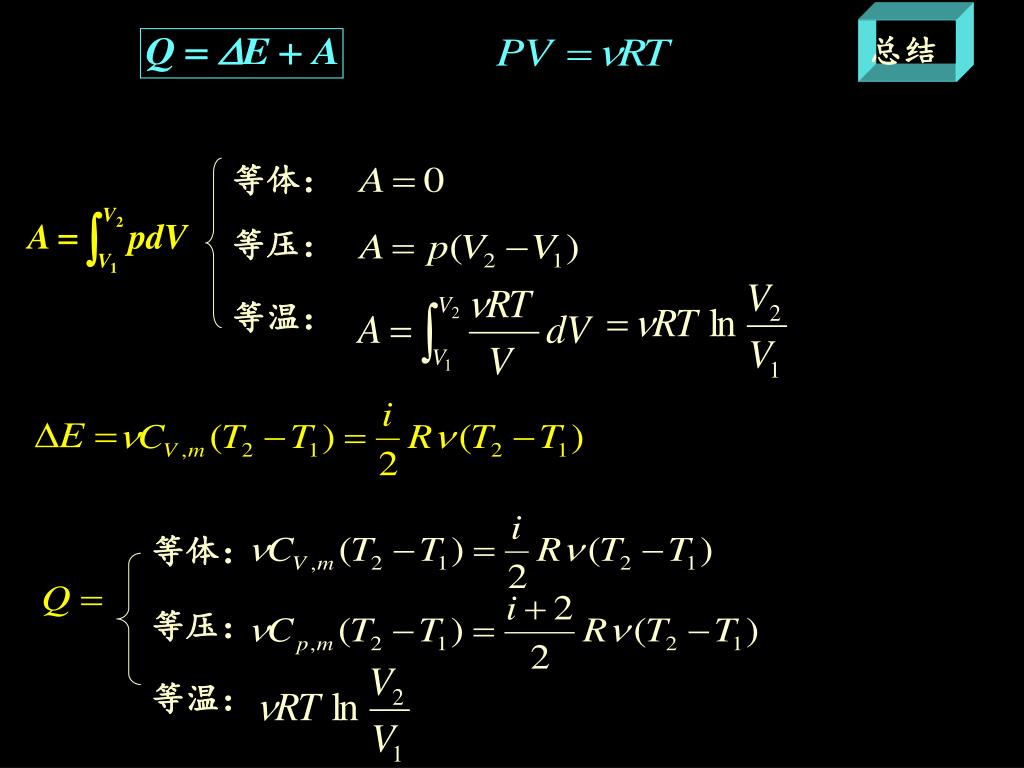 Q = ΔE + A
PV = νRT
总结
等体： A = 0
A = ∫_{V₁}^{V₂} pdV
等压： A = p(V₂ − V₁)
等温： A = ∫_{V₁}^{V₂} \frac{νRT}{V} dV = νRT ln \frac{V₂}{V₁}
ΔE = νC_{V,m}(T₂ − T₁) = \frac{i}{2} Rν(T₂ − T₁)
等体：νC_{V,m}(T₂ − T₁) = \frac{i}{2} Rν(T₂ − T₁)
Q =
等压：νC_{p,m}(T₂ − T₁) = \frac{i+2}{2} Rν(T₂ − T₁)
等温： νRT ln \frac{V₂}{V₁}